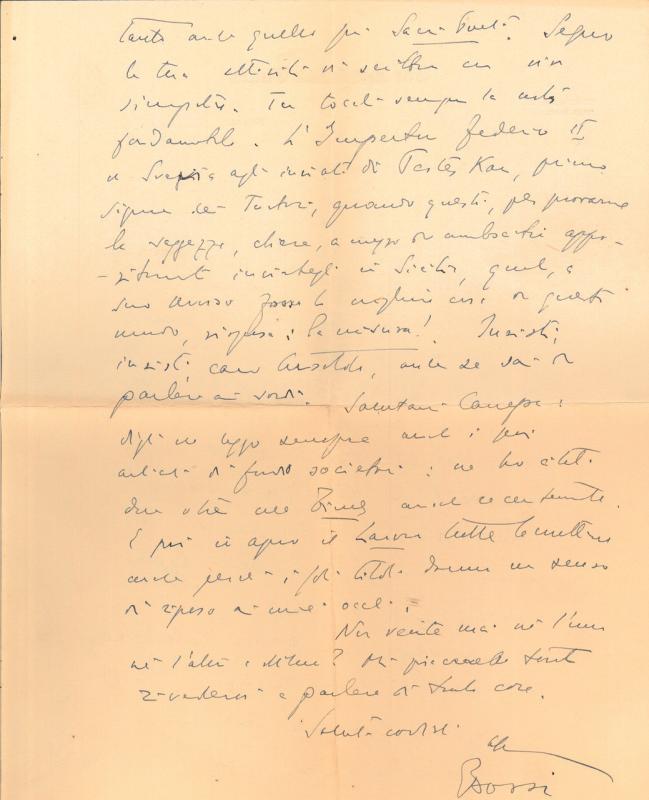 tanto anche quello per Sacco Svelto. Seguo
la tua attività di scrittore con viva
simpatia. Tu tocchi sempre la nota
fondamentale. L'Imperatore Federico II
di Svevia agli inviati di Kan, primo
signore dei Tartari, quando questi, per provarne
la saggezza, chiese, a mezzo di ambasciatori appo-
-sitamente inviatigli in Sicilia, quale, a
suo avviso fosse la migliore cosa di questo
mondo, rispose: la misura! Insisti,
insisti caro, anche se sai di
parlare ai sordi. Salutami Canepa:
digli che leggo sempre anche i suoi
articoli di fondo : ne ho citati
due volte anche recentemente.
E poi io apro il Lavoro tutte le mattine
anche perché i titoli danno un senso
di riposo ai miei occhi.
Non verrete mai né l'uno
né l'altro a Milano? Mi piacerebbe tanto
rivedervi e parlare di tante cose.
Saluti cordiali